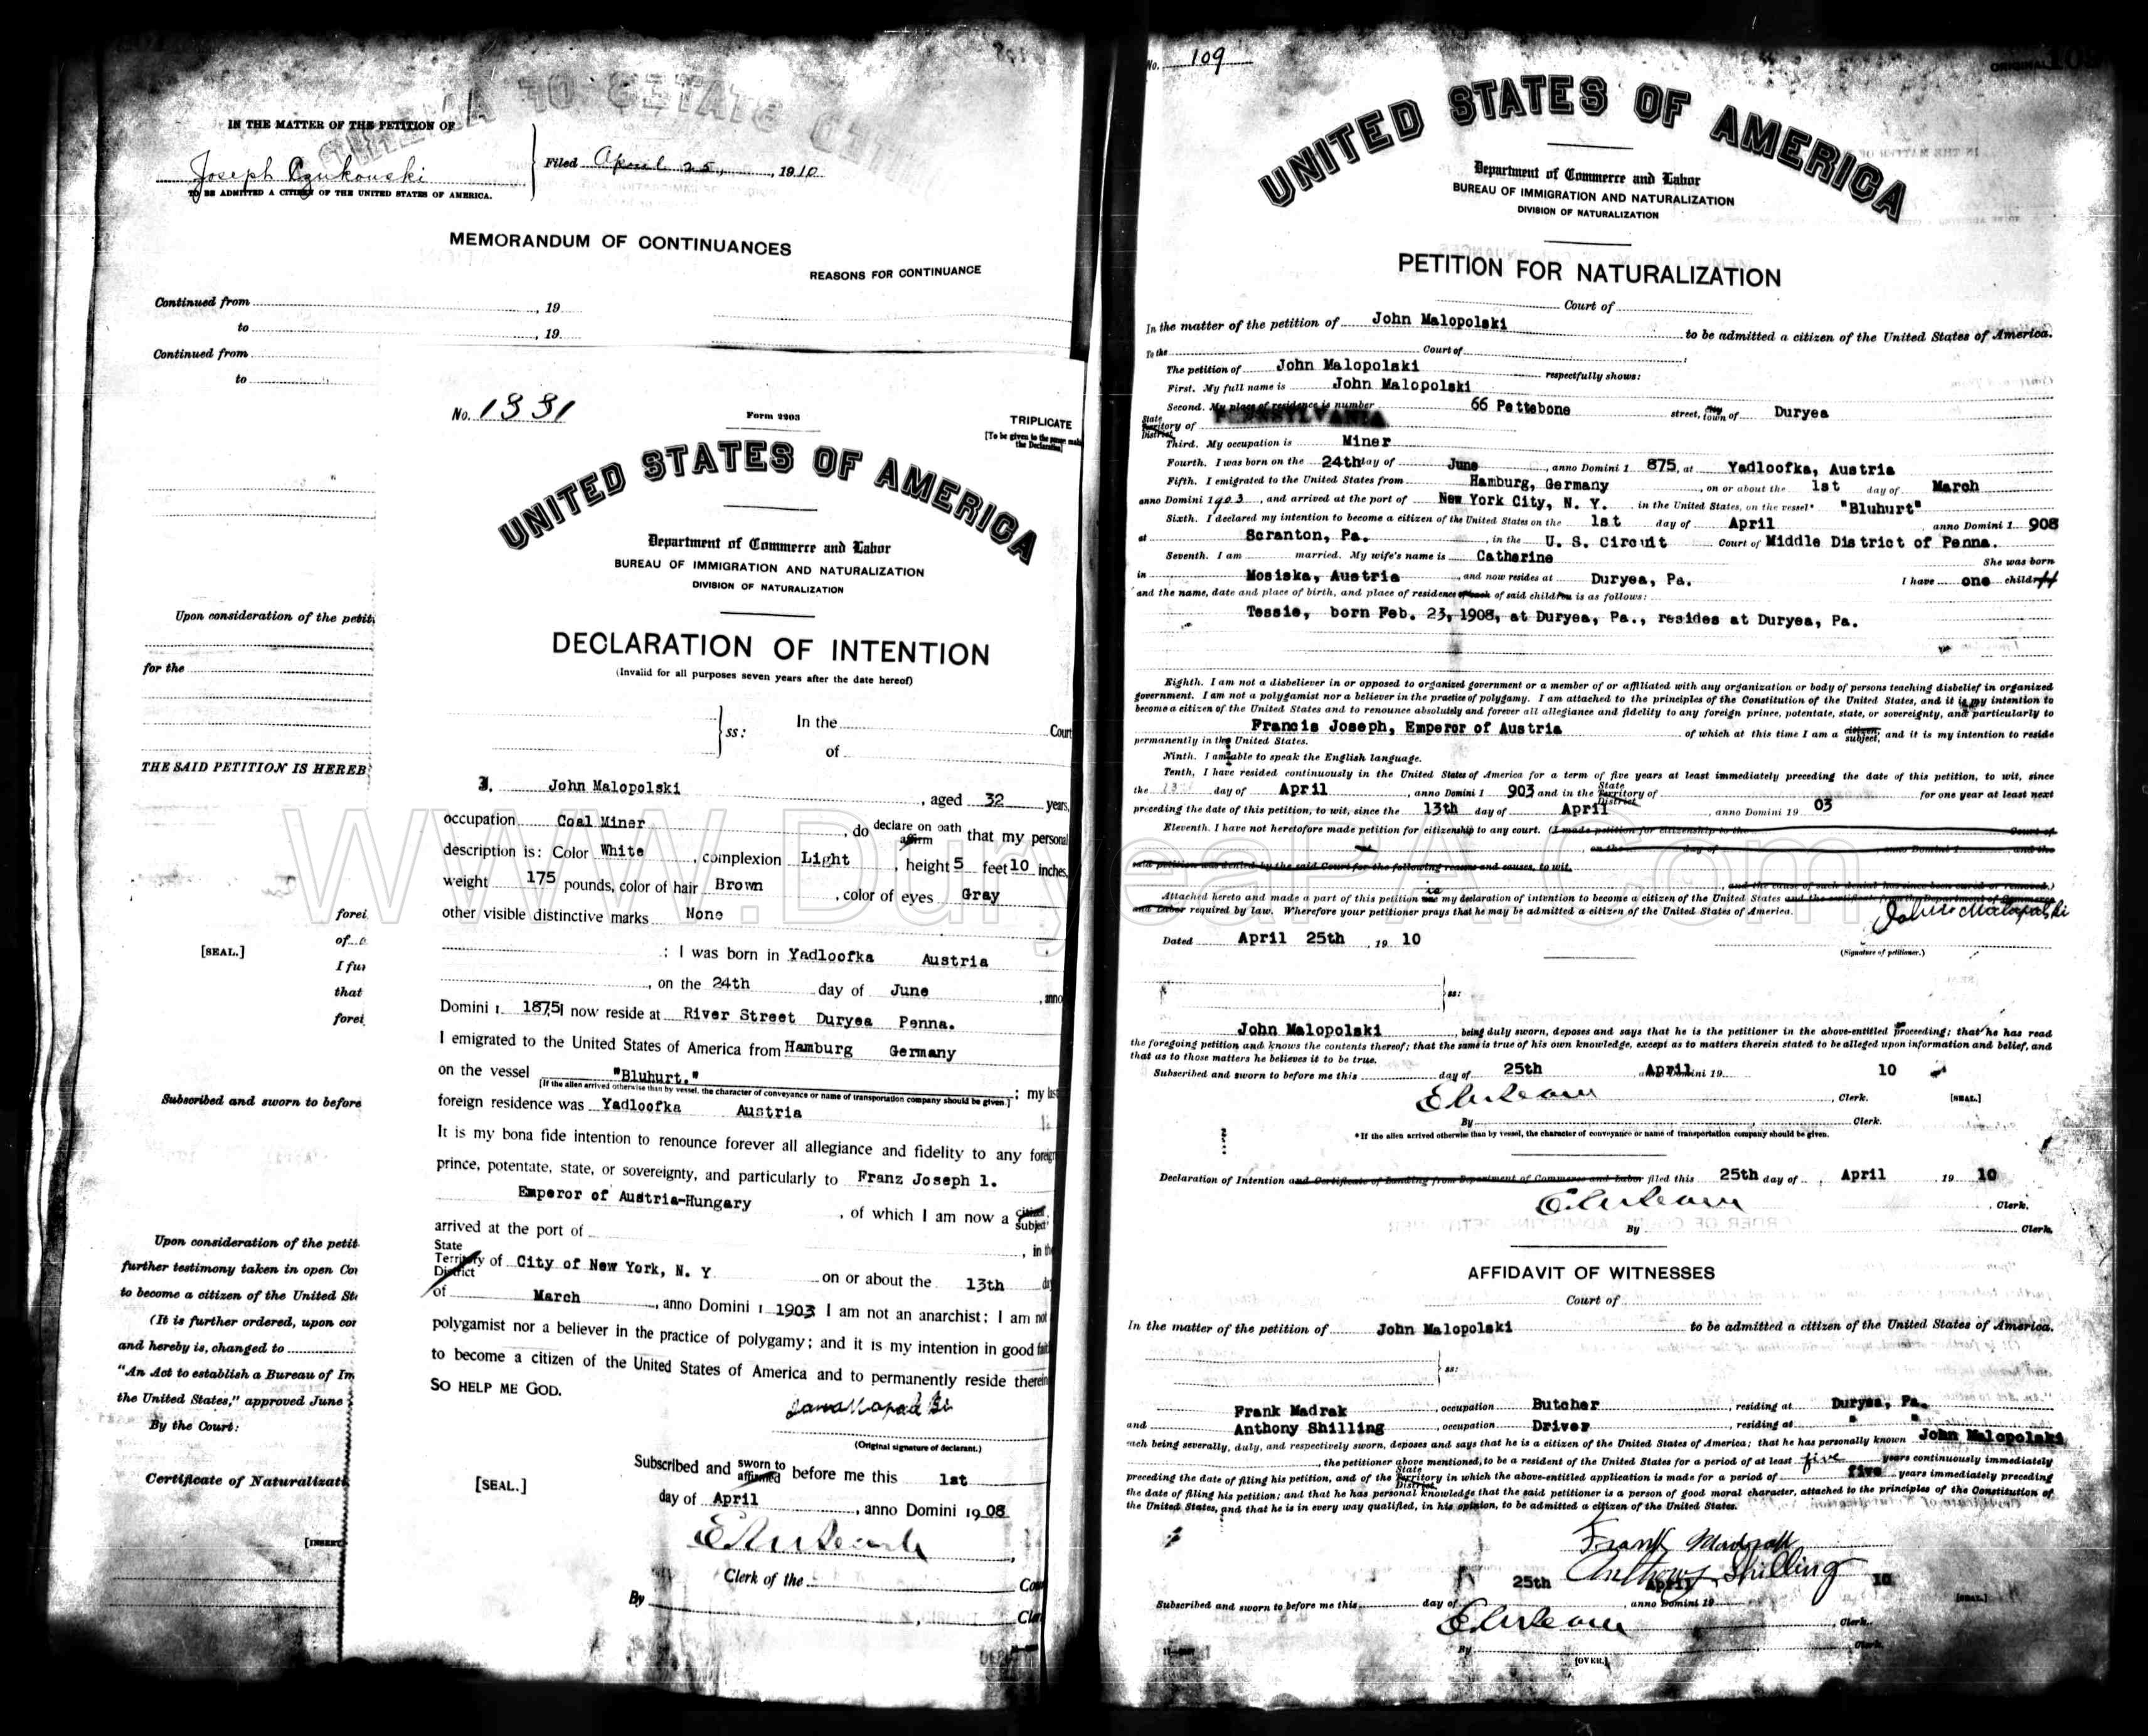 IN THE MATTER OF THE PETITION OF
Joseph
Filed April 25, 1910
TO BE ADMITTED A CITIZEN OF THE UNITED STATES OF AMERICA.
MEMORANDUM OF CONTINUANCES
REASONS FOR CONTINUANCE
Continued from , 19
to , 19
Continued from
to
Upon consideration of the petit
for the
THE SAID PETITION IS HEREB
forei
of
[SEAL.]
I fur
that
forei
Subscribed and sworn to before
Upon consideration of the petit
further testimony taken in open Cou
to become a citizen of the United St
(It is further ordered, upon con
and hereby is, changed to
"An Act to establish a Bureau of Im
the United States," approved June
By the Court:
Certificate of Naturalizati
No. 1331
Form 2203
TRIPLICATE
[To be given to the person making the Declaration]
UNITED STATES OF AMERICA
Department of Commerce and Labor
BUREAU OF IMMIGRATION AND NATURALIZATION
DIVISION OF NATURALIZATION
DECLARATION OF INTENTION
(Invalid for all purposes seven years after the date hereof)
ss: In the Court
of
I, John Malopolski , aged 32 years,
occupation Coal Miner , do declare on oath affirm that my personal
description is: Color White , complexion Light , height 5 feet 10 inches,
weight 175 pounds, color of hair Brown , color of eyes Gray
other visible distinctive marks None
; I was born in Yadloofka Austria
, on the 24th day of June , anno
Domini 1 875, I now reside at River Street Duryea Penna.
I emigrated to the United States of America from Hamburg Germany
on the vessel "Bluhurt."
[If the alien arrived otherwise than by vessel, the character of conveyance or name of transportation company should be given.] ; my last
foreign residence was Yadloofka Austria
It is my bona fide intention to renounce forever all allegiance and fidelity to any foreign
prince, potentate, state, or sovereignty, and particularly to Franz Joseph 1.
Emperor of Austria-Hungary , of which I am now a citizen subject
arrived at the port of , in the
State Territory District of City of New York, N. Y on or about the 13th day
of March , anno Domini 1 1903 I am not an anarchist; I am not
polygamist nor a believer in the practice of polygamy; and it is my intention in good faith
to become a citizen of the United States of America and to permanently reside therein
SO HELP ME GOD.
(Original signature of declarant.)
Subscribed and sworn to affirmed before me this 1st
[SEAL.]
day of April , anno Domini 19 08
Clerk of the Cou
By , Cler
No. 109
ORIGINAL
UNITED STATES OF AMERICA
Department of Commerce and Labor
BUREAU OF IMMIGRATION AND NATURALIZATION
DIVISION OF NATURALIZATION
PETITION FOR NATURALIZATION
Court of
In the matter of the petition of John Malopolski to be admitted a citizen of the United States of America.
To the Court of :
The petition of John Malopolski respectfully shows:
First. My full name is John Malopolski
Second. My place of residence is number 66 Pettebone street, city town of Duryea
State Territory District of PENNSYLVANIA
Third. My occupation is Miner
Fourth. I was born on the 24th day of June , anno Domini 1 875, at Yadloofka, Austria
Fifth. I emigrated to the United States from Hamburg, Germany , on or about the 1st day of March
anno Domini 1903 , and arrived at the port of New York City, N. Y. , in the United States, on the vessel* "Bluhurt"
Sixth. I declared my intention to become a citizen of the United States on the 1st day of April , anno Domini 1 908
at Scranton, Pa. , in the U. S. Circuit Court of Middle District of Penna.
Seventh. I am married. My wife's name is Catharine She was born
in Mosiska, Austria , and now resides at Duryea, Pa. I have one children
and the name, date and place of birth, and place of residence of each of said children is as follows:
Tessie, born Feb. 23, 1908, at Duryea, Pa., resides at Duryea, Pa.
Eighth. I am not a disbeliever in or opposed to organized government or a member of or affiliated with any organization or body of persons teaching disbelief in organized
government. I am not a polygamist nor a believer in the practice of polygamy. I am attached to the principles of the Constitution of the United States, and it is my intention to
become a citizen of the United States and to renounce absolutely and forever all allegiance and fidelity to any foreign prince, potentate, state, or sovereignty, and particularly to
Francis Joseph, Emperor of Austria of which at this time I am a citizen subject, and it is my intention to reside
permanently in the United States.
Ninth. I am able to speak the English language.
Tenth. I have resided continuously in the United States of America for a term of five years at least immediately preceding the date of this petition, to wit, since
the 13 day of April , anno Domini 1 903 and in the State Territory District of for one year at least next
preceding the date of this petition, to wit, since the 13th day of April , anno Domini 19 03
Eleventh. I have not heretofore made petition for citizenship to any court. (I made petition for citizenship to the Court of
on the day of anno Domini 1 and the
said petition was denied by the said Court for the following reasons and causes, to wit,
, and the cause of such denial has since been cured or removed.)
Attached hereto and made a part of this petition are is my declaration of intention to become a citizen of the United States and the certificate from the Department of Commerce
and Labor required by law. Wherefore your petitioner prays that he may be admitted a citizen of the United States of America.
Dated April 25th , 19 10
(Signature of petitioner.)
ss:
John Malopolski , being duly sworn, deposes and says that he is the petitioner in the above-entitled proceeding; that he has read
the foregoing petition and knows the contents thereof; that the same is true of his own knowledge, except as to matters therein stated to be alleged upon information and belief, and
that as to those matters he believes it to be true.
Subscribed and sworn to before me this 25th day of April anno Domini 19 10
, Clerk. [SEAL.]
By Clerk.
*If the alien arrived otherwise than by vessel, the character of conveyance or name of transportation company should be given.
Declaration of Intention and Certificate of Landing from Department of Commerce and Labor filed this 25th day of April 19 10
, Clerk.
By Clerk.
AFFIDAVIT OF WITNESSES
Court of
In the matter of the petition of John Malopolski to be admitted a citizen of the United States of America.
ss:
Frank Madrak , occupation Butcher , residing at Duryea, Pa.
and Anthony Shilling , occupation Driver , residing at " "
each being severally, duly, and respectively sworn, deposes and says that he is a citizen of the United States of America; that he has personally known John Malopolski
, the petitioner above mentioned, to be a resident of the United States for a period of at least five years continuously immediately
preceding the date of filing his petition, and of the State Territory District in which the above-entitled application is made for a period of five years immediately preceding
the date of filing his petition; and that he has personal knowledge that the said petitioner is a person of good moral character, attached to the principles of the Constitution of
the United States, and that he is in every way qualified, in his opinion, to be admitted a citizen of the United States.
Frank Madrak
Anthony Shilling
Subscribed and sworn to before me this 25th day of April , anno Domini 19 10
, Clerk. [SEAL.]
By Clerk.
[OVER.]
WWW.DuryeaPA.Com